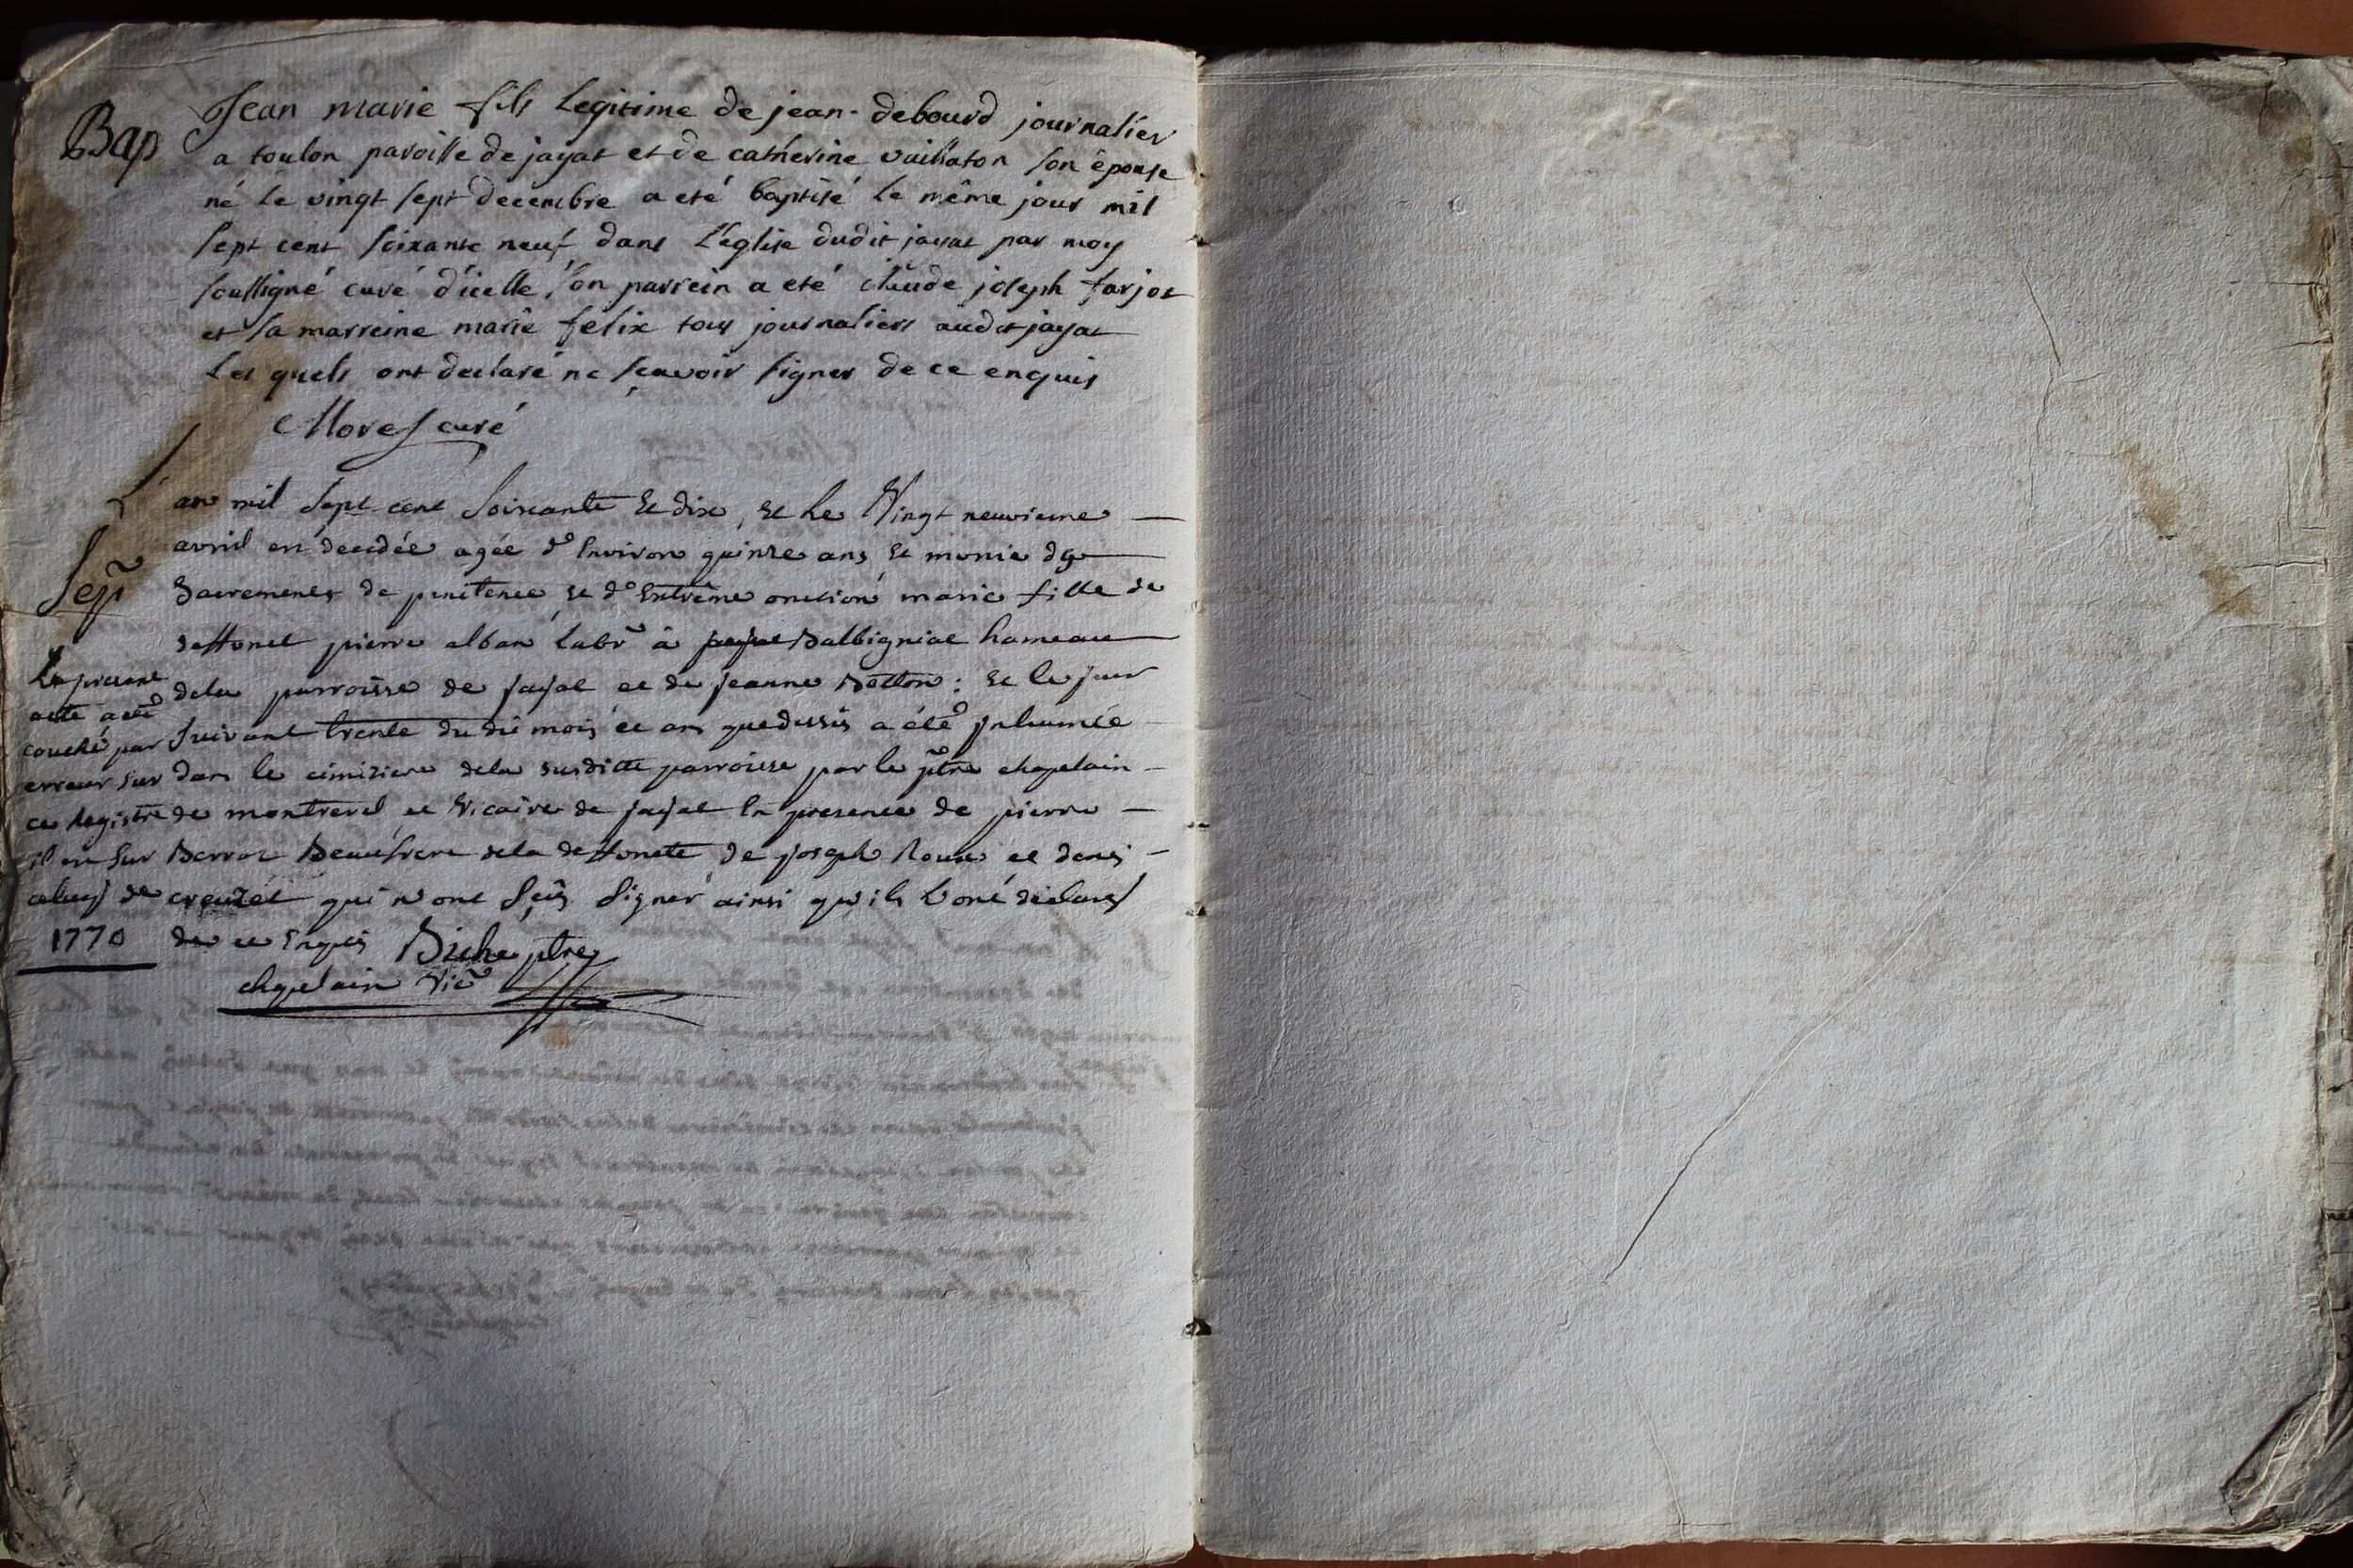 Bap
Jean marie fils Legitime de jean debourd journalier
a toulon paroisse de jayat et de catherine vaillaton son épouse
né le vingt sept decembre a eté baptisé le même jour mil
sept cent soixante neuf dans l'église dudit jayat par moy
soussigné curé d'icelle, son parrein a eté claude joseph farjot
et sa marreine marie felix tous journaliers audit jayat
Les quels ont declaré ne sçavoir signer de ce enquis
Mores curé
L'an mil sept cent soixante et dix, et le Vingt neuvieme
avril est decedée agée d'environ quinze ans et munie des
Sep
Sacrements de penitence et d'Extrême onction marie fille de
deffunct pierre alban labr à jayat Balbigniat hameau
dela parroisse de jayat et de jeanne : et le jour
suivant trente du dit mois et an que dessus a été inhumée
dans le cimitiere dela susditte parroisse par le ptre chapelain
de montrevel et Vicaire de jayat en presence de pierre
Berrot Beaufrere dela deffuncte de joseph Roux et denis
creuzet qui n'ont sçu signer ainsi qu'ils l'ont déclaré
de ce Enquis Biche ptre
chapelain Vic
Le present
acte a eté
couché par
erreur sur
ce Registre
il est sur
celuy de
1770